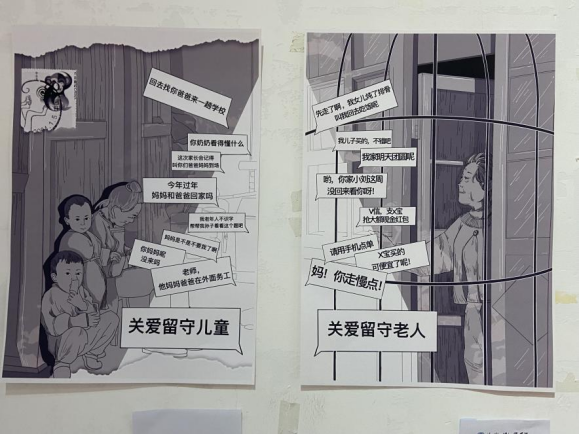 回去找你爸爸来一趟学校
你奶奶看得懂什么
这次家长会记得
叫你们爸爸妈妈到场
今年过年
妈妈和爸爸回家吗
我老年人不识字
帮帮我孙子看看这个题吧
妈妈是不是不要我了啊
你妈妈呢
没来吗
老师，
他妈妈爸爸在外面务工
关爱留守儿童
先走了啊，我女儿炖了排骨
叫我回去吃饭呢
我儿子买的，不错吧
我家明天团圆呢
哟，你家小刘这周
没回来看你呀！
V信，支x宝
抢大额现金红包
请用手机点单
X宝买的
可便宜了呢！
妈！你走慢点！
关爱留守老人